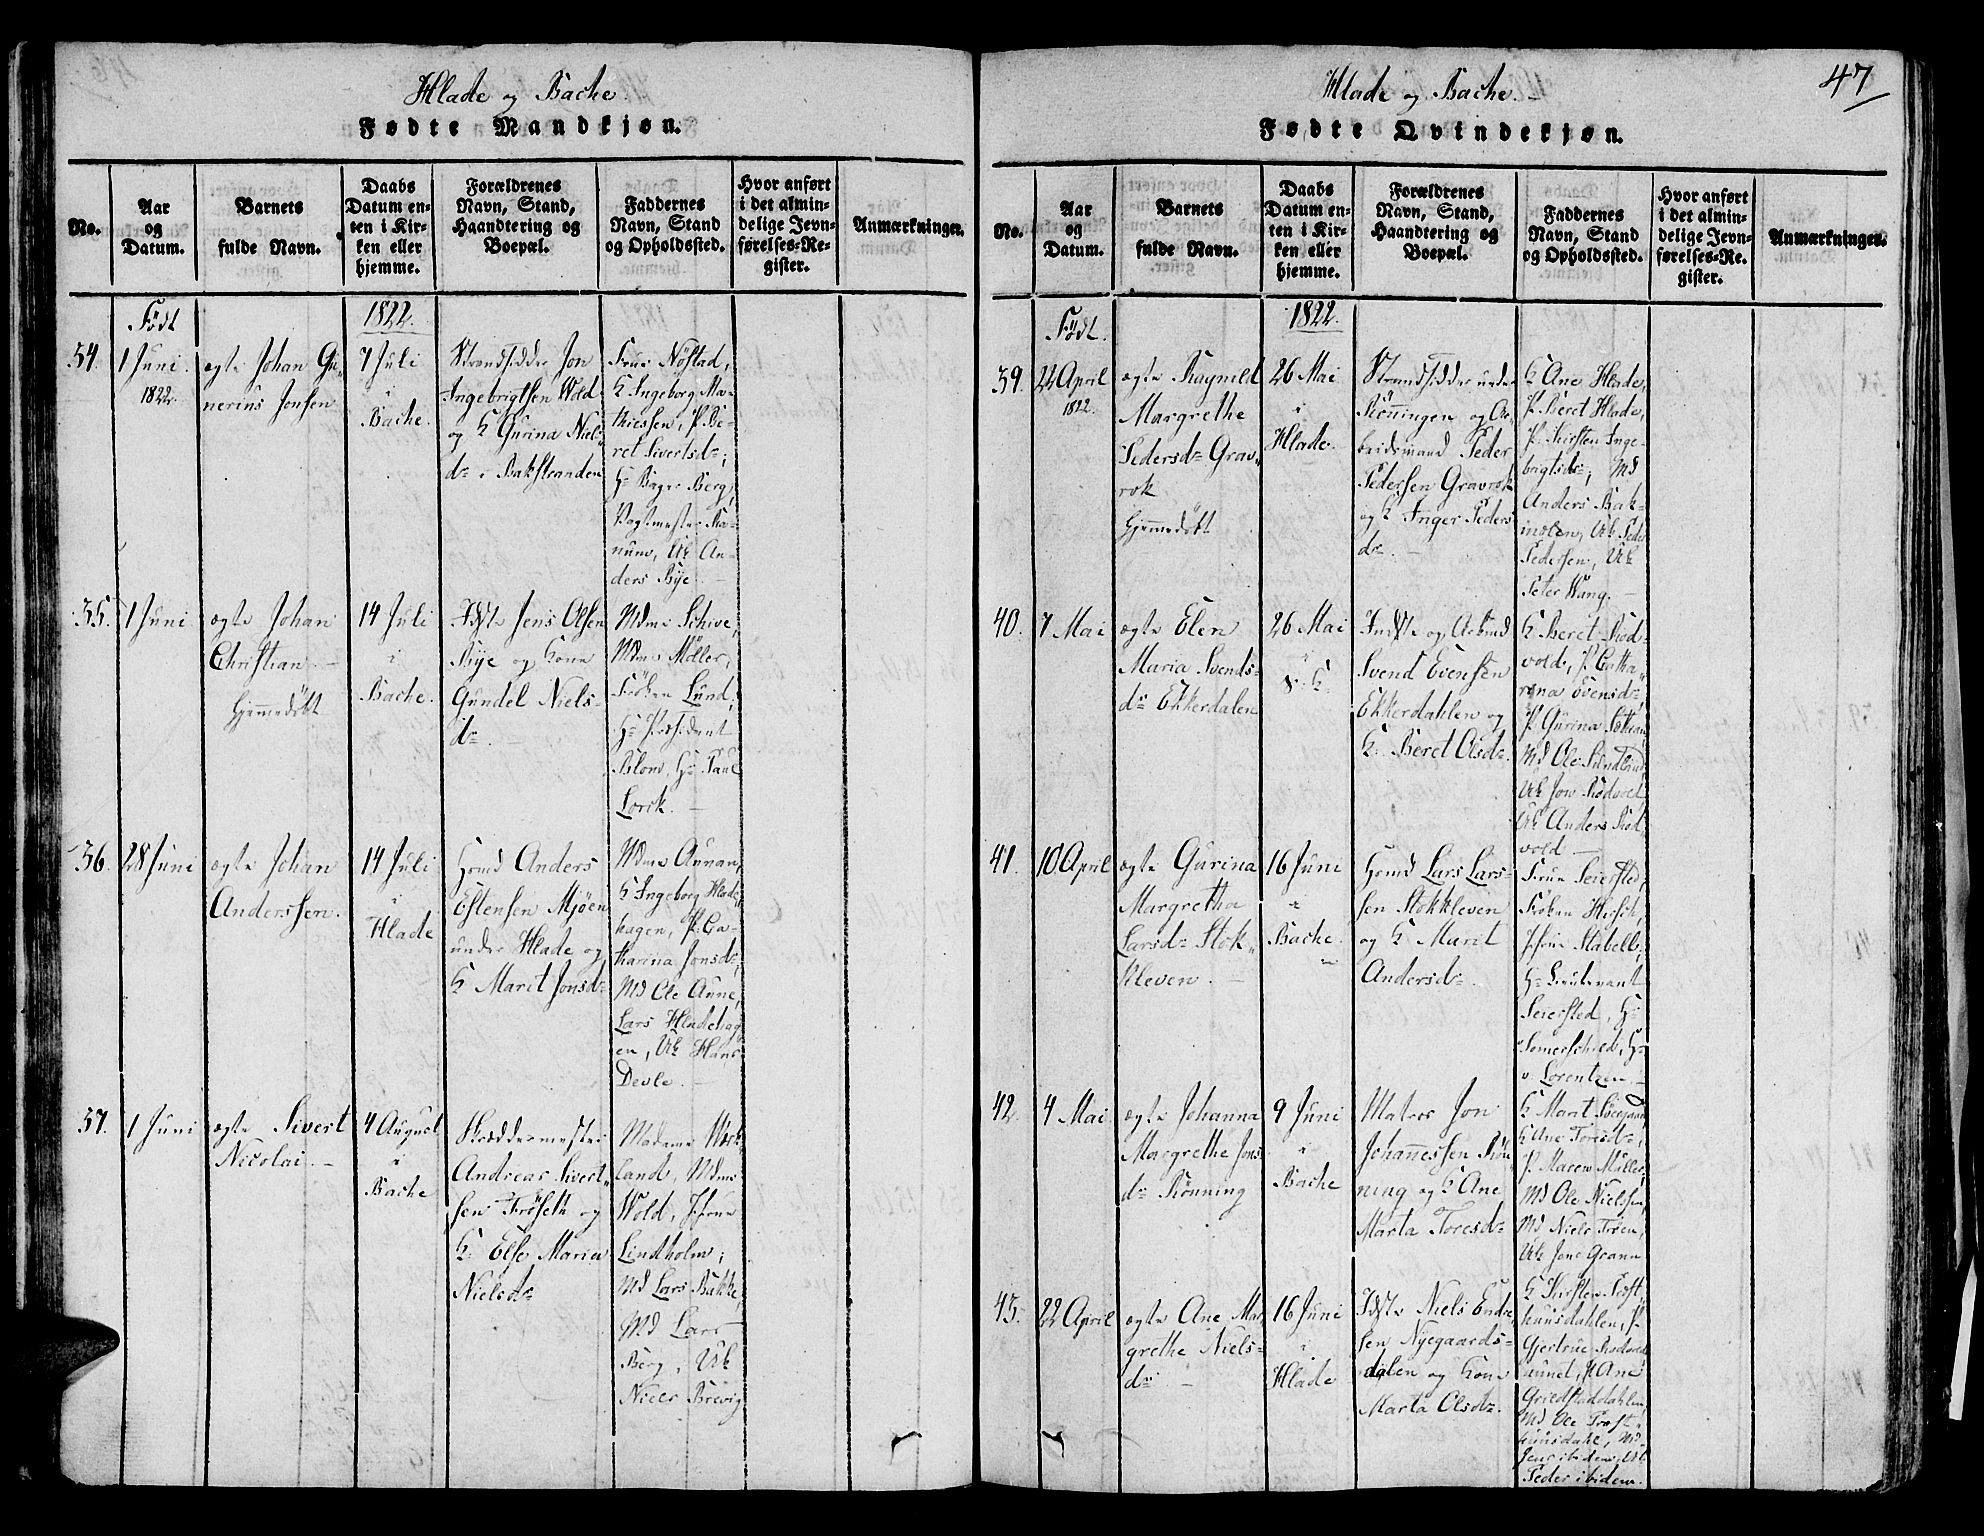 Hlade og Bache.
Fødte Mandkjøn.
No.
Aar
og
Datum.
Barnets
fulde Navn.
Daabs
Datum en-
ten i Kir-
ken eller
hjemme.
Forældrenes
Navn, Stand,
Haandtering og
Boepæl.
Faddernes
Navn, Stand
og Opholdssted.
Hvor anført
i det almin-
delige Jevn-
førelses-Re-
gister.
Anmærkninger.
Født
1822.
34.
1 Juni
1822.
ægte Johan Gu-
nerius Jonsen
7 Juli
i
Bache.
Strandsidder Jon
Ingebrigtsen Wold
og K Gurina Niels
dr i Bakstranden
Frue Nøstad,
K Ingeborg Ma-
thiessen, P. Be-
ret Sivertsdr;
Hr Bager Berg,
Vagtmester Ra-
num, Uk An-
ders Bye. —
35.
1 Juni
ægte Johan
Christian. —
hjemmedøbt
14 Juli
i
Bache.
Idste Jens Olsen
Bye og Kone
Gundel Niels-
dr. —
Mdme Schive,
Mdme Möller,
Frøken Lund;
Hr Præsident
Blom, Hr Paul
Lorck. —
36.
28 Juni
ægte Johan
Anderssen.
14 Juli
i
Hlade
Hmd Anders
Estensen Mjøen
under Hlade og
K Marit Jonsdr
Mdme Aunan,
K Ingeborg Hlade-
hagen, P. Ca-
tharina Jonsdr;
Md Ole Aune,
Lars Hladehag
en, Uk Hans
Devle. —
37.
1 Juni
ægte Sivert
Nicolai. —
4 August
i
Bache
Skreddermester
Andreas Sivert-
sen Frøseth og
K. Else Maria
Nielsdr
Madame Werk
land, Mdme
Wold, Jfrue
Lindholm;
Md Lars Bakke,
Md Lars
Berg, Uk
Niels Brevig
47
Hlade og Bache. —
Fødte Qvindekjøn.
No.
Aar
og
Datum.
Barnets
fulde Navn.
Daabs
Datum en-
ten i Kir-
ken eller
hjemme.
Forældrenes
Navn, Stand,
Haandtering og
Boepæl.
Faddernes
Navn, Stand
og Opholdssted.
Hvor anført
i det almin-
delige Jevn-
førelses-Re-
gister.
Anmærkninger.
Født.
1822.
39.
22 April
1822.
ægte Ragnild
Margrethe
Pedersdr Grav-
rok
hjemmedøbt
26 Mai
i
Hlade.
Strandsidder under
Rønningen og Ar-
beidsmand Peder
Pedersen Gravrok
og K Inger Peders
dr. —
K Ane Hlade,
P. Beret Hlade,
P. Kirsten Inge-
brigtsdr; Md
Anders Bak-
molen, Uk Peder
Pedersen, Uk
Peter Wang. —
40.
7 Mai
ægte Elen
Maria Svends-
dr Ekkerdalen
26 Mai
s. K.
Indste og Arbmd
Svend Evensen
Ekkerdahlen og
K. Beret Olsdr.
K Beret Rod-
vold, P. Catha-
rina Evensdr,
Md Ole
Uk Jon Rodvol,
Uk Anders Rod
vold —
41.
10 April
ægte Gurina
Margretha
Larsdr Stok-
kleven. —
16 Juni
i
Bache.
Hmd Lars Lars-
sen Stokkleven
og K Marit
Andersdr.
Frue Seiersted,
Frøken Hirsch,
Jfrue Stabell;
Hr Lieutenant
Seiersted, Hr
Somerschied, Hr
v. Lorentzen. —
42.
4 Mai
ægte Johanna
Margrethe Jons
dr Rønning
9 Juni
i
Bache
Matros Jon
Johannessen Røn-
ning og K Ane
Marta Toresdr
K Marit
K Ane Toresdr,
P Maren Müller,
Md Ole Nielssen,
Md Niels Troen,
Uk Jens Grann
43.
22 April
ægte Ane Mar
grethe Niels-
dr —
16 Juni
i
Hlade
Idste Niels Endre
sen Nyegaards-
dalen og Kone
Marta Olsdr.
K Kirsten Prost,
huusdahlen, P.
Gjertrue
aunet, P Ane
Grilstaddahlen,
Md Ole Prost-
huusdahl, Md
Jens ibidem, Uk
Peder ibidem.